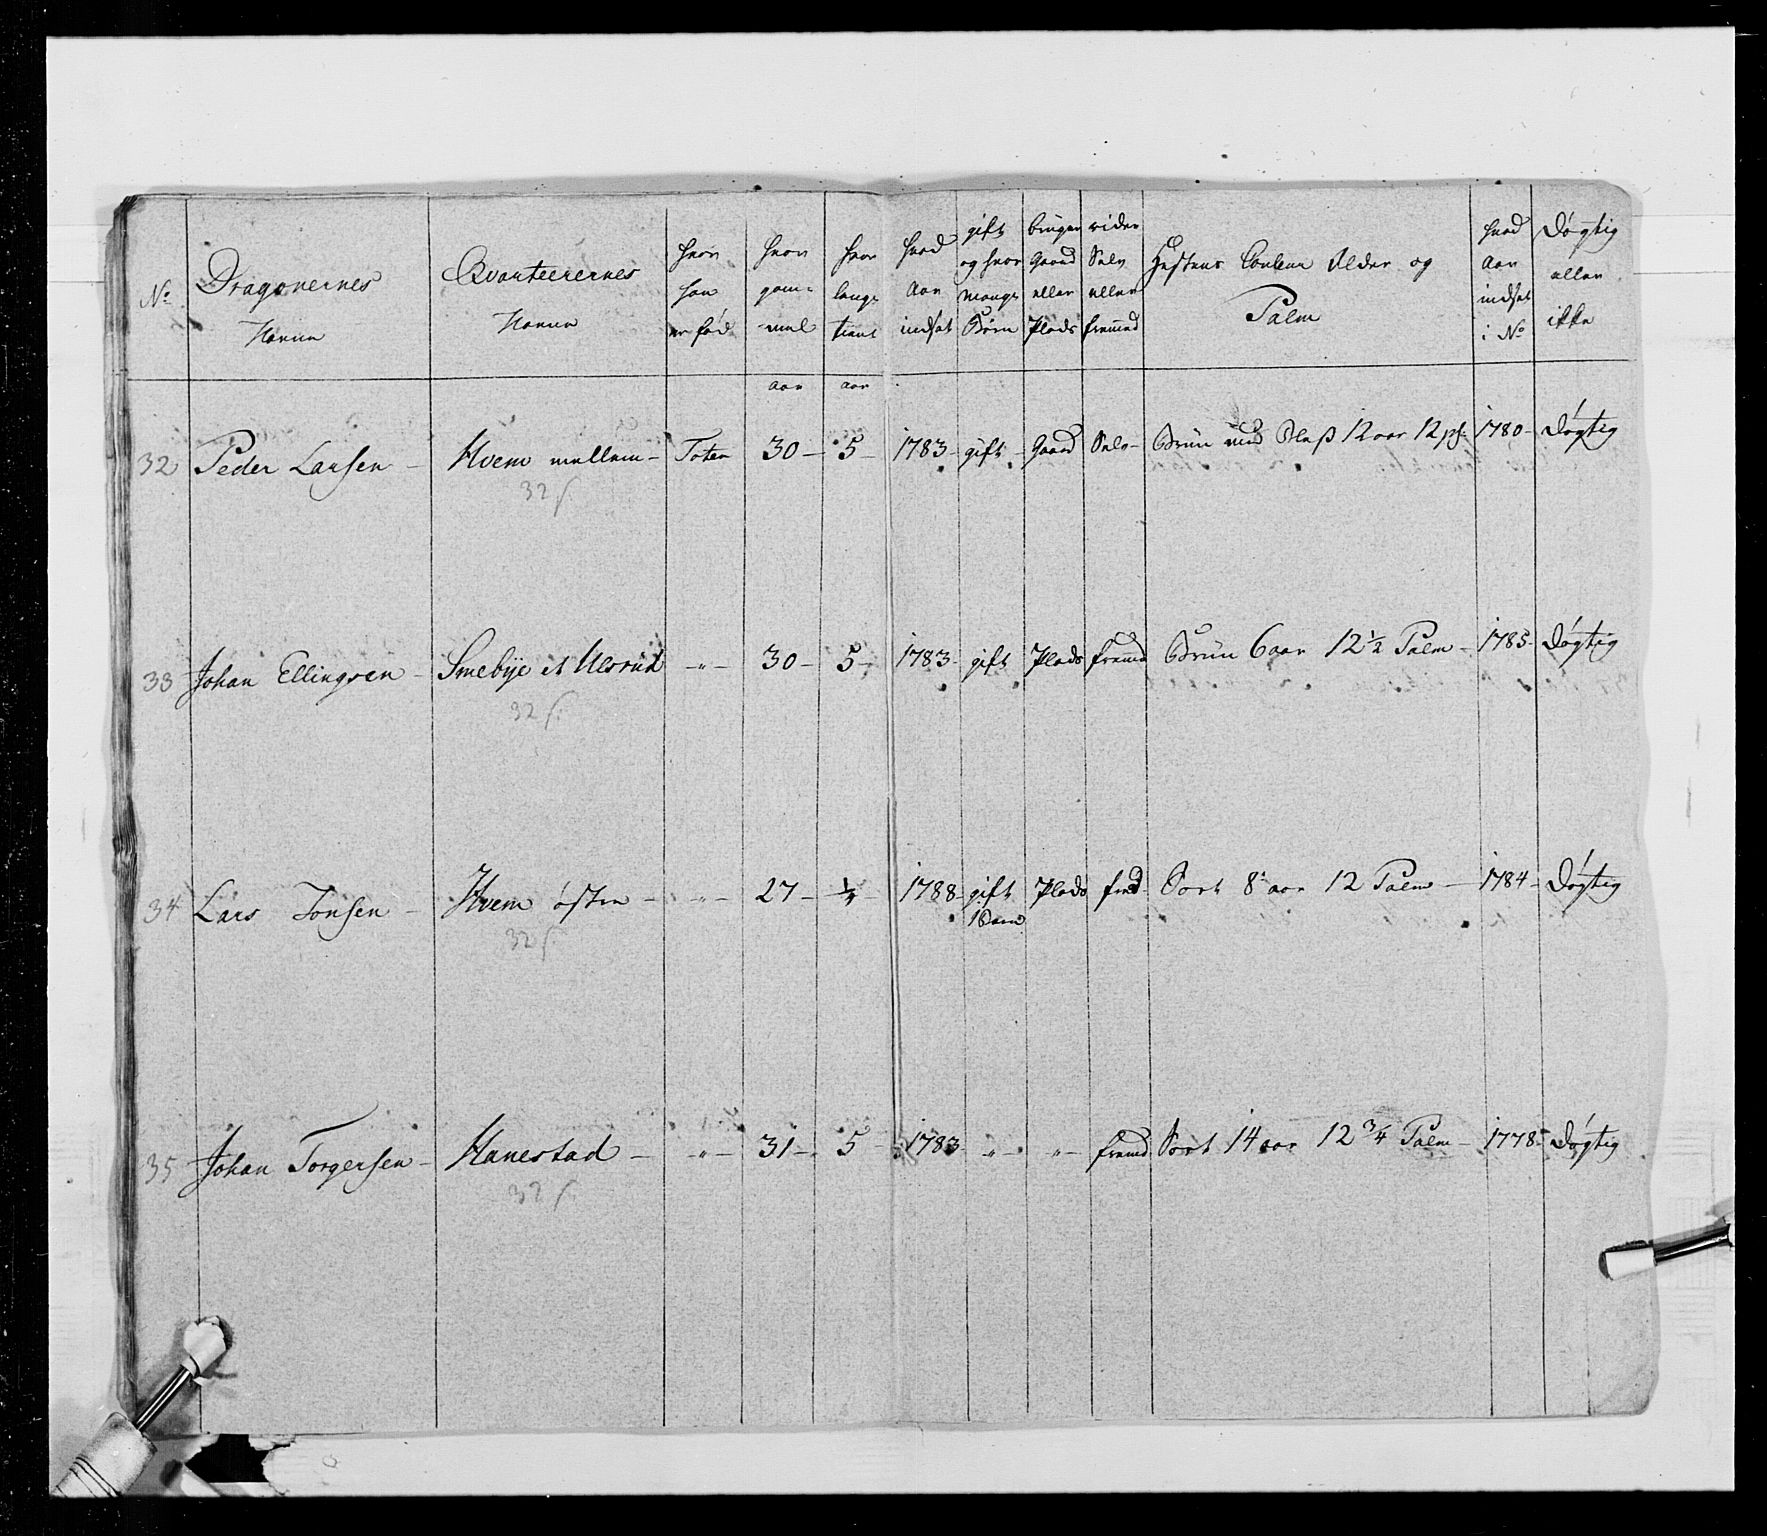 No | Dragonernes Navne | Qvarteerernes Navne | hvor han er fød | hvor gam= mel | hvor lenge tient | hvad Aar indsat | gift og hvor mange Børn | bruger Gaard eller Plads | rider Selv eller fremmed | Hestens Couleur Alder og Palm | hvad Aar indsat i No | Døgtig eller ikke
aar | aar
32 | Peder Larsen - | Hvem mellem - | Toten | 30 - | 5 - | 1783 - | gift - | Gaard | Selv - | Brun med Bless 12 aar 12 p: | 1780 - | Døgtig
32 s.
33 | Johan Ellingsen - | Smebye et Ulsrud | -"- | 30 - | 5 - | 1783 - | gift | Plads | fremed | Brun 6 aar 12 1/2 Palm - | 1785 - | Døgtig
32 s.
34 | Lars Jonsen - | Hvem østre - | -"- | 27 - | 1/4 - | 1788 - | gift 1 Barn | Plads | fmd | Sort 8 aar 12 Palm - | 1784 - | Døgtig
32 s.
35 | Johan Torgersen - | Hanestad - | -"- | 31 - | 5 - | 1783 | -"- | -"- | fremd | Sort 14 aar 12 3/4 Palm - | 1778 - | Døgtig
32 s.